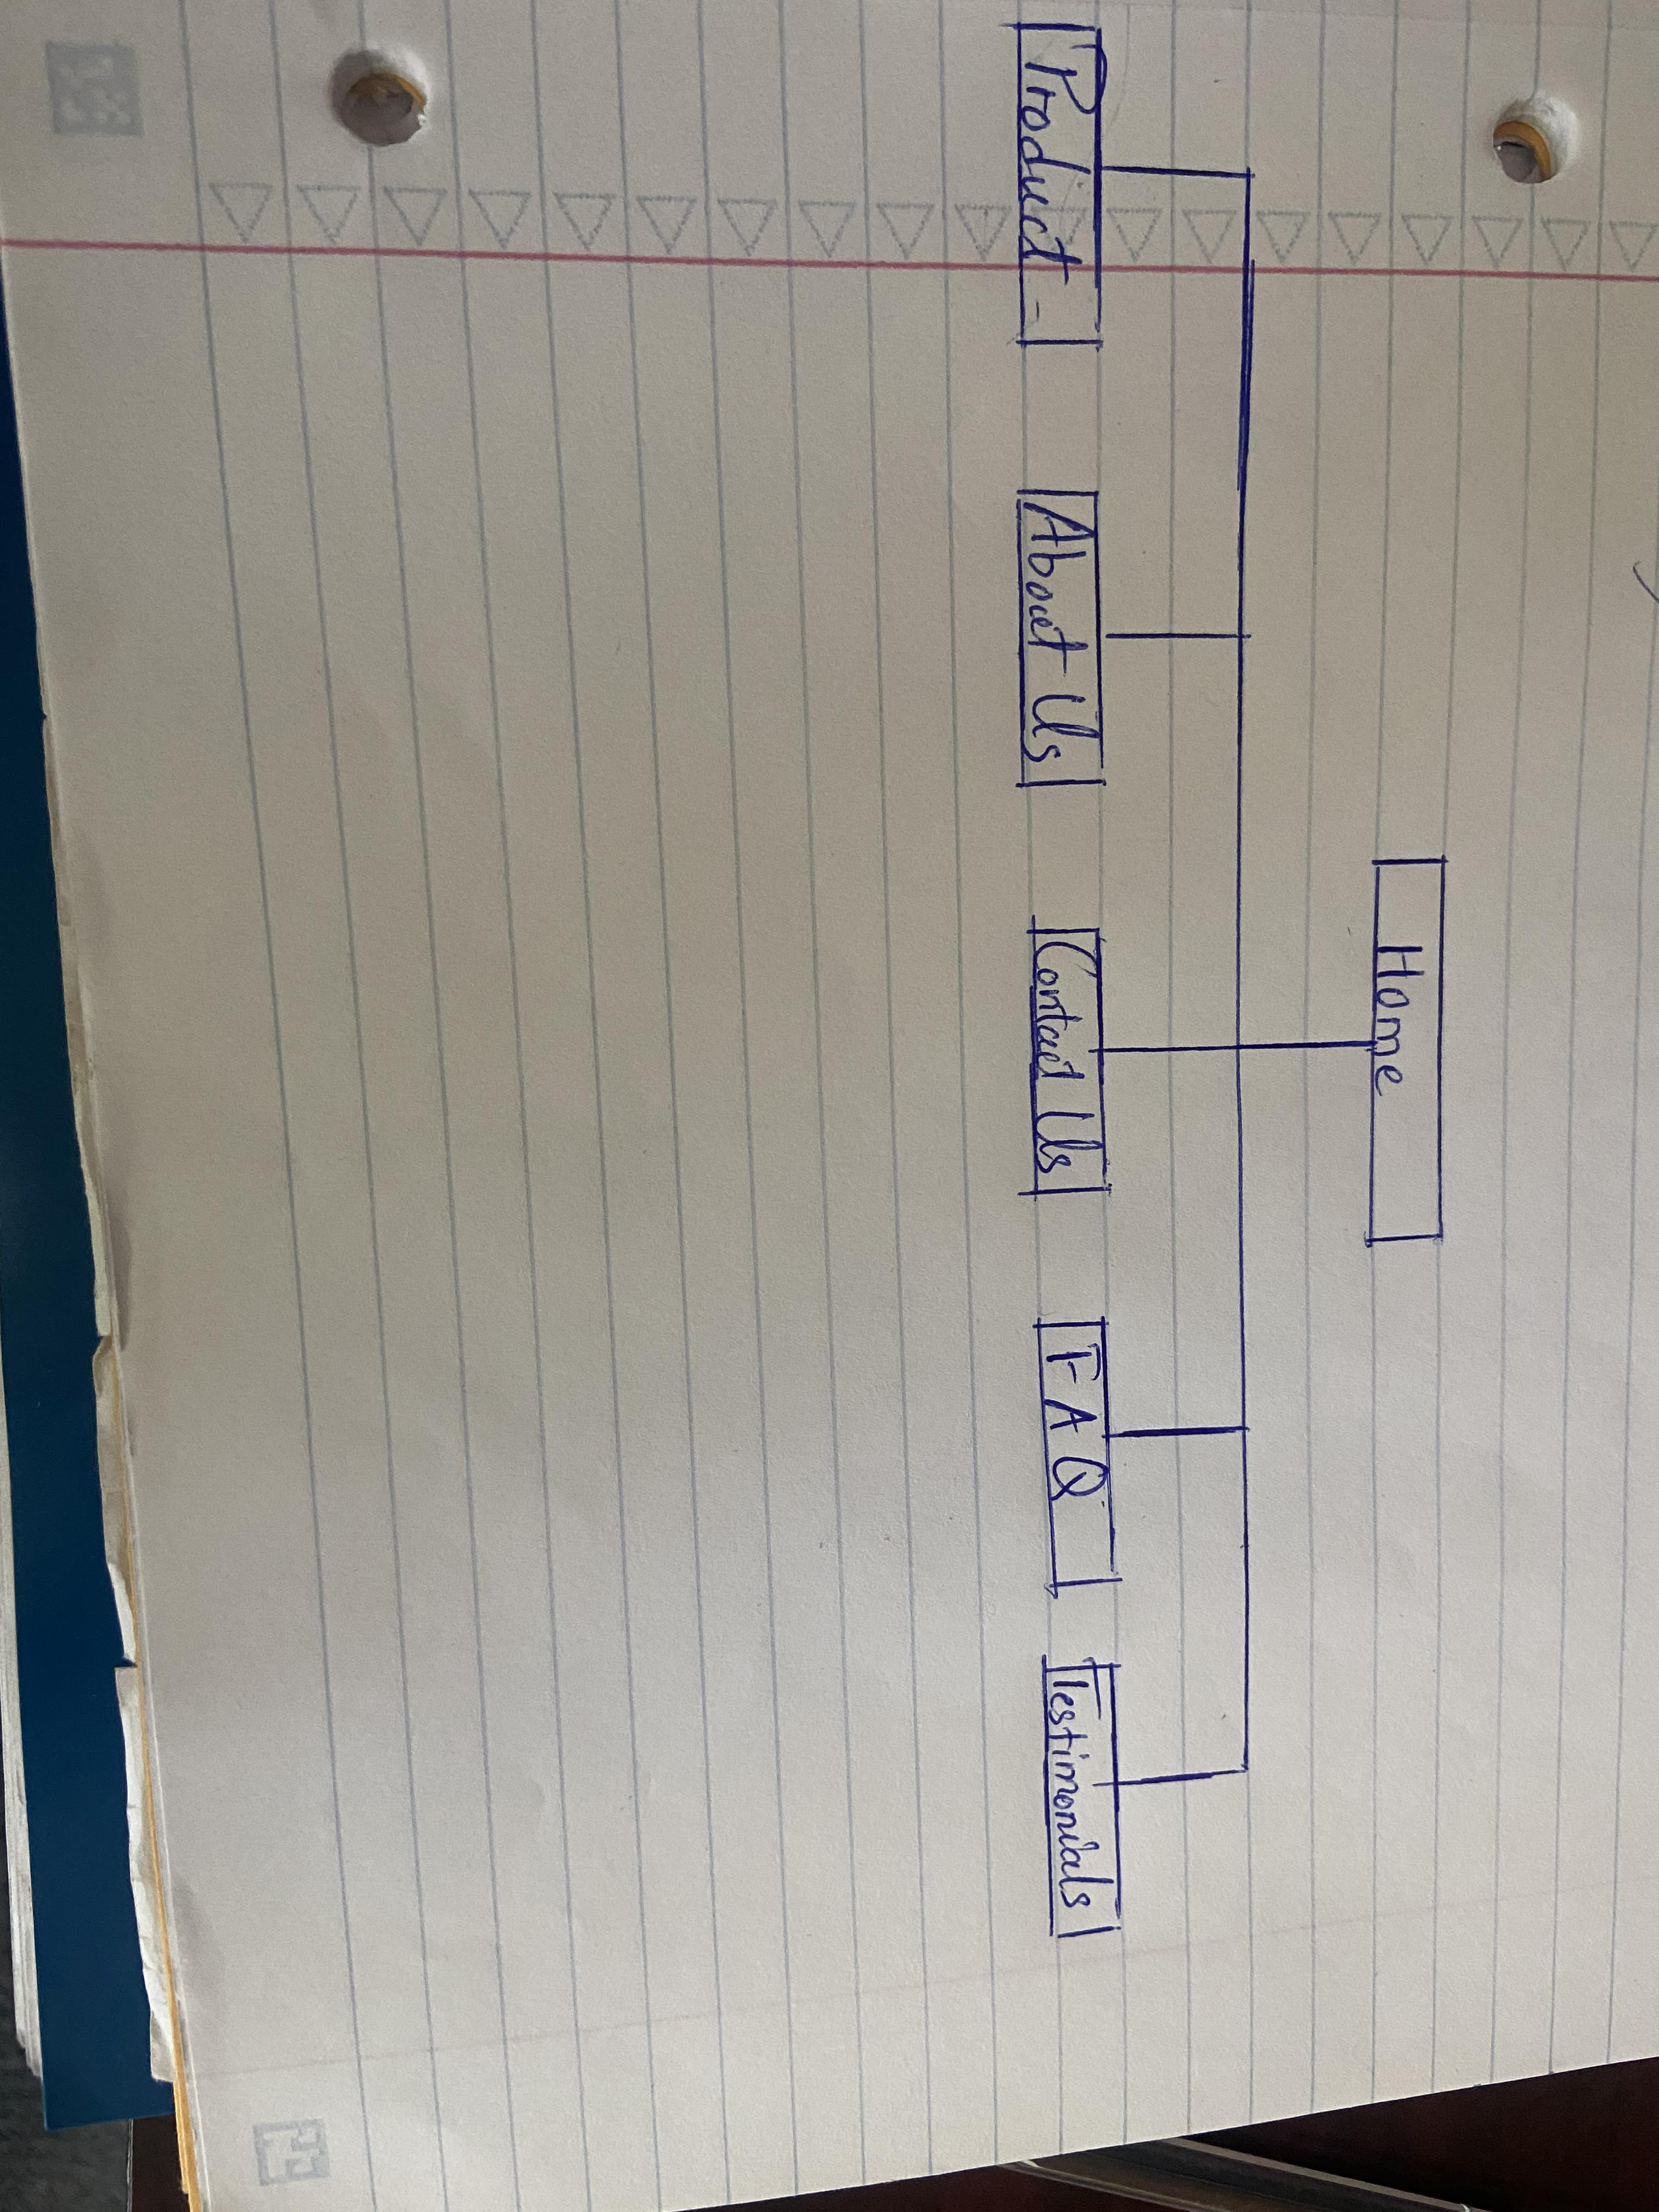 Home
Product -
About Us
Contact Us
FAQ
Testimonials